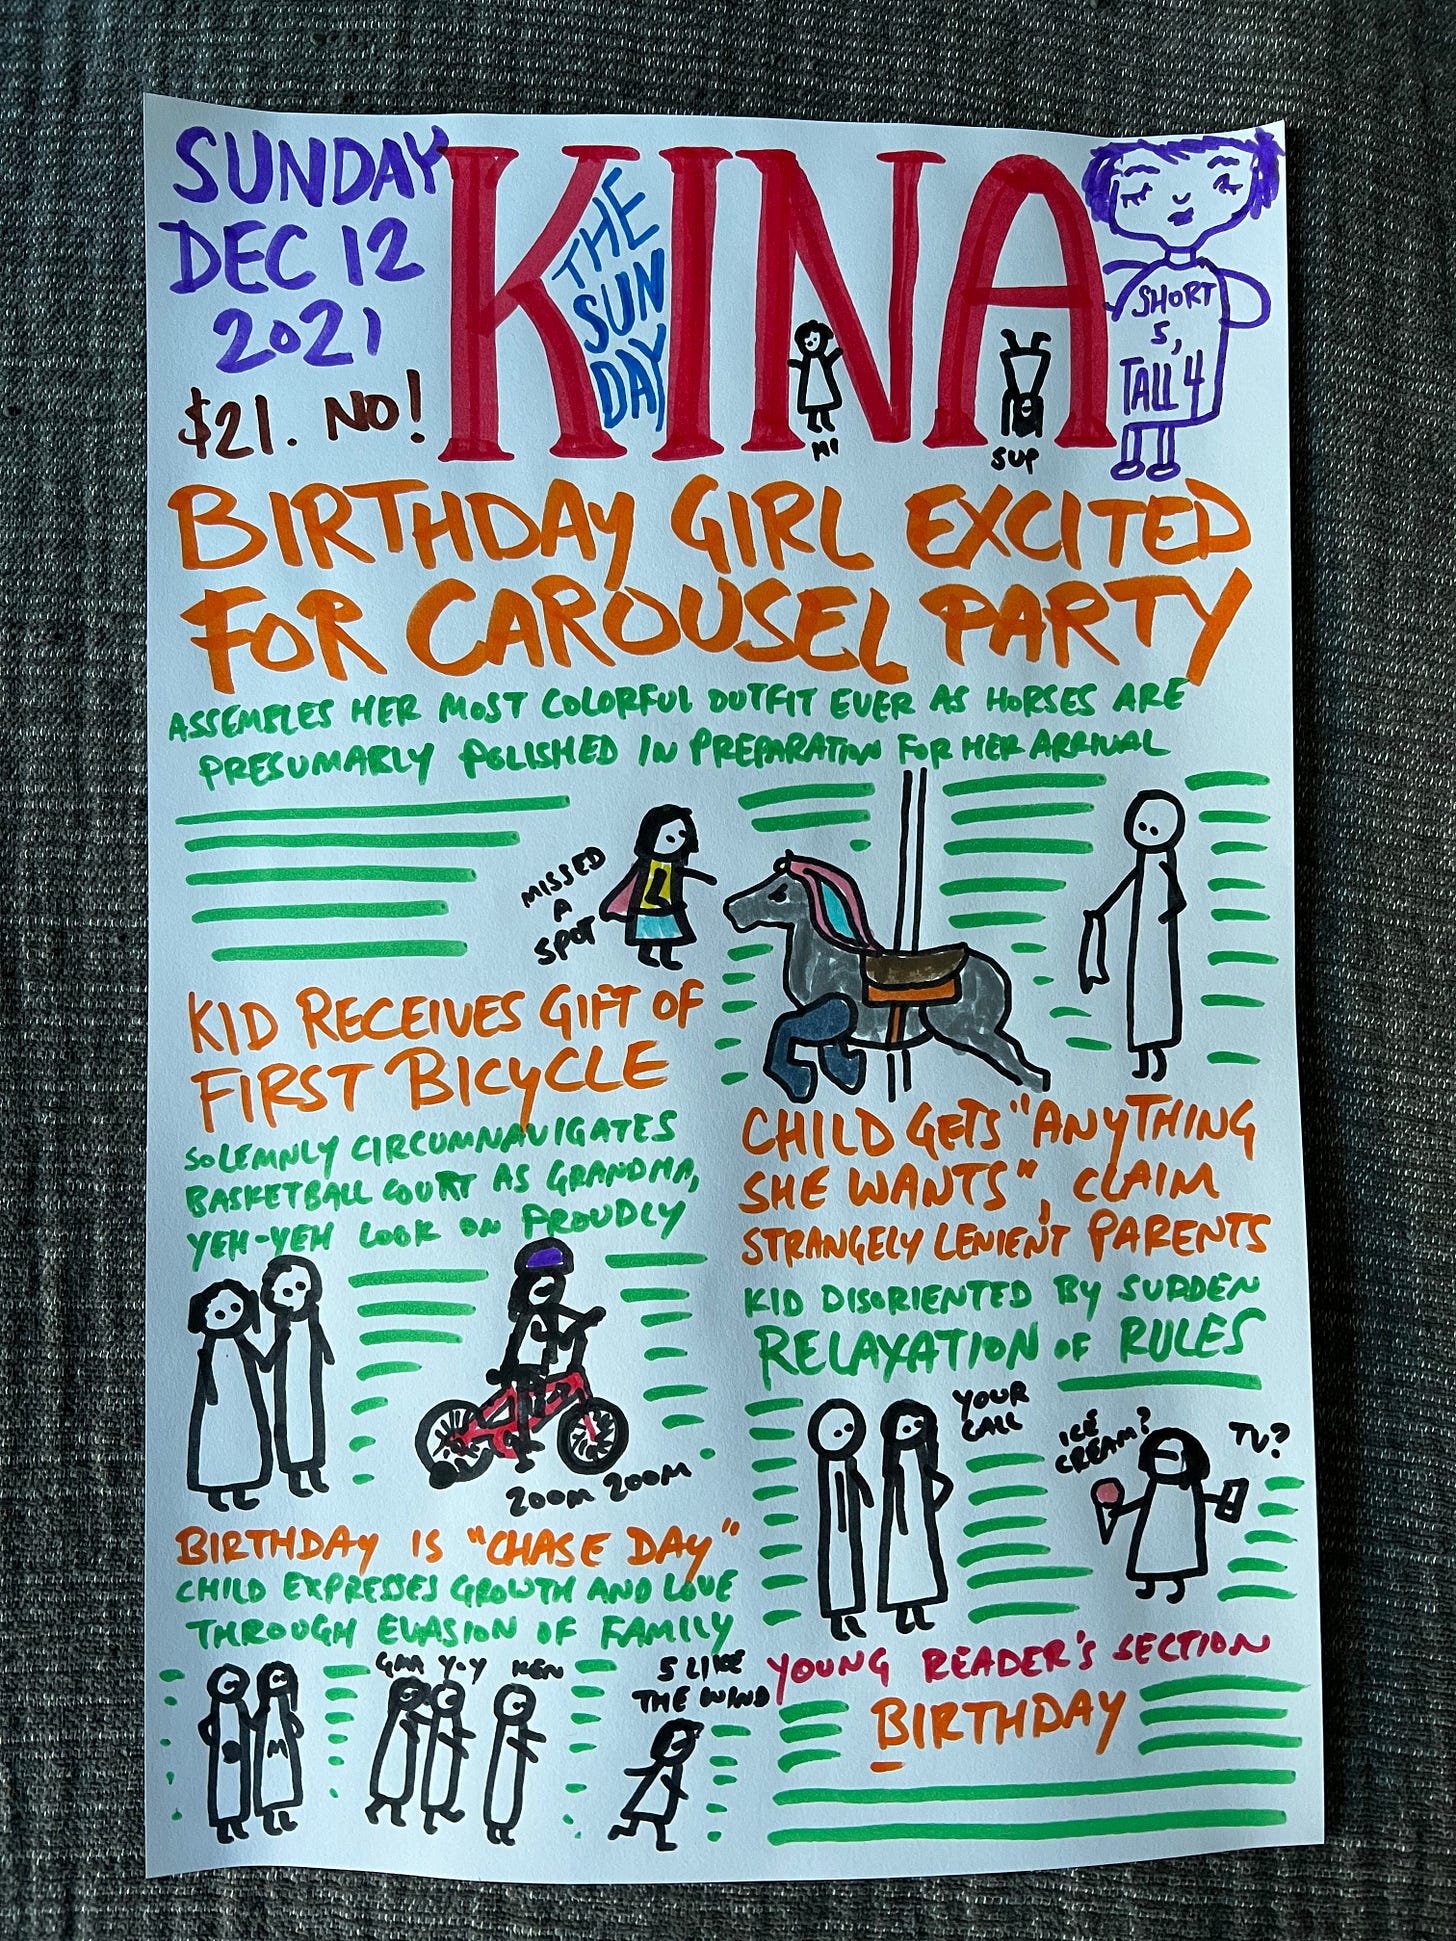 SUNDAY
DEC 12
2021
$21. NO!
KINA
THE
SUN
DAY
HI
SUP
SHORT
5,
TALL 4
BIRTHDAY GIRL EXCITED
FOR CAROUSEL PARTY
ASSEMBLES HER MOST COLORFUL OUTFIT EVER AS HORSES ARE
PRESUMABLY POLISHED IN PREPARATION FOR HER ARRIVAL
MISSED
A
SPOT
KID RECEIVES GIFT OF
FIRST BICYCLE
SOLEMNLY CIRCUMNAVIGATES
BASKETBALL COURT AS GRANDMA,
YEH-YEH LOOK ON PROUDLY
ZOOM ZOOM
CHILD GETS "ANYTHING
SHE WANTS", CLAIM
STRANGELY LENIENT PARENTS
KID DISORIENTED BY SUDDEN
RELAXATION OF RULES
YOUR
CALL
ICE
CREAM?
TV?
BIRTHDAY IS "CHASE DAY"
CHILD EXPRESSES GROWTH AND LOVE
THROUGH EVASION OF FAMILY
Y-Y
KEN
5 LIKE
THE WIND
M
YOUNG READER'S SECTION
BIRTHDAY